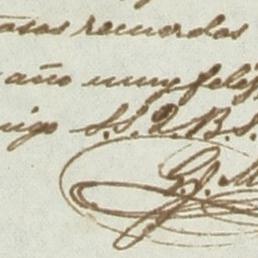 recuerdos
año muy feliz
migo S.S.Q.B.S.
G. M